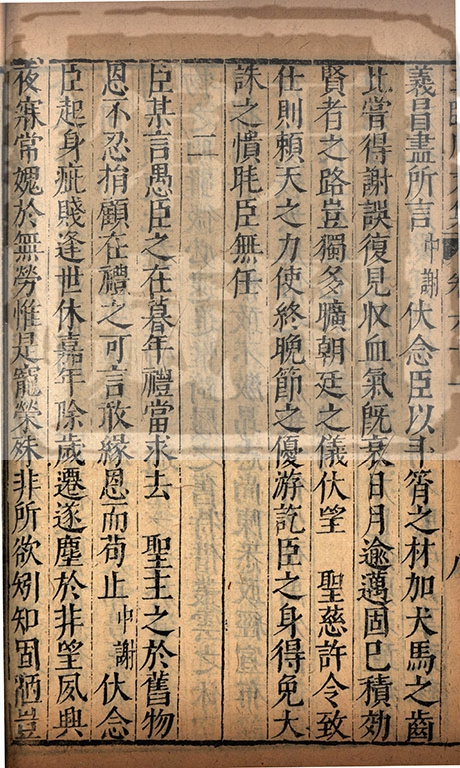 義昌盡所言中謝伏念臣以斗筲之材加犬馬之齒
比嘗得謝誤復見収血氣旣衰日月逾邁固已積効
賢者之路豈獨多曠朝廷之儀伏望 聖慈許令致
仕則賴天之力使終晚節之優游訖臣之身得免大
誅之憒眊臣無任
二
臣某言愚臣之在暮年禮當求去 聖主之於舊物
恩不忍捐顧在禮之可言敢緣恩而苟止中謝伏念
臣起身疵賤逢世休嘉年除歲遷遂塵於非望夙興
夜寐常媿於無勞惟是寵榮殊非所欲矧知固陋豈